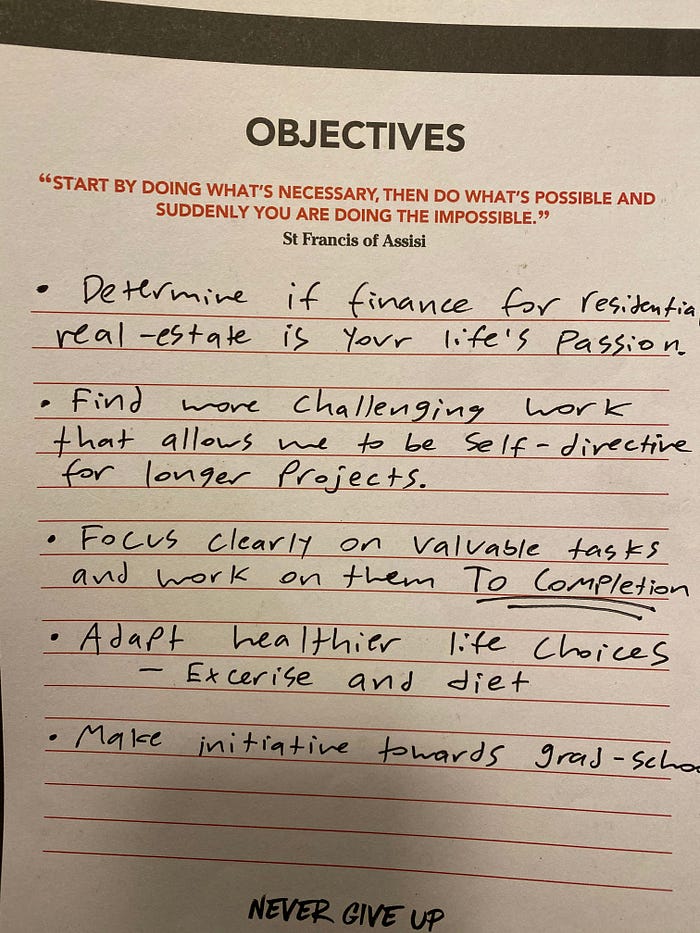 OBJECTIVES
“START BY DOING WHAT’S NECESSARY, THEN DO WHAT’S POSSIBLE AND
SUDDENLY YOU ARE DOING THE IMPOSSIBLE.”
St Francis of Assisi
• Determine if finance for residentia
real-estate is your life's passion.
• Find more challenging work
that allows me to be self-directive
for longer projects.
• Focus clearly on valuable tasks
and work on them To Completion
• Adapt healthier life choices
– Excerise and diet
• Make initiative towards grad-scho
NEVER GIVE UP